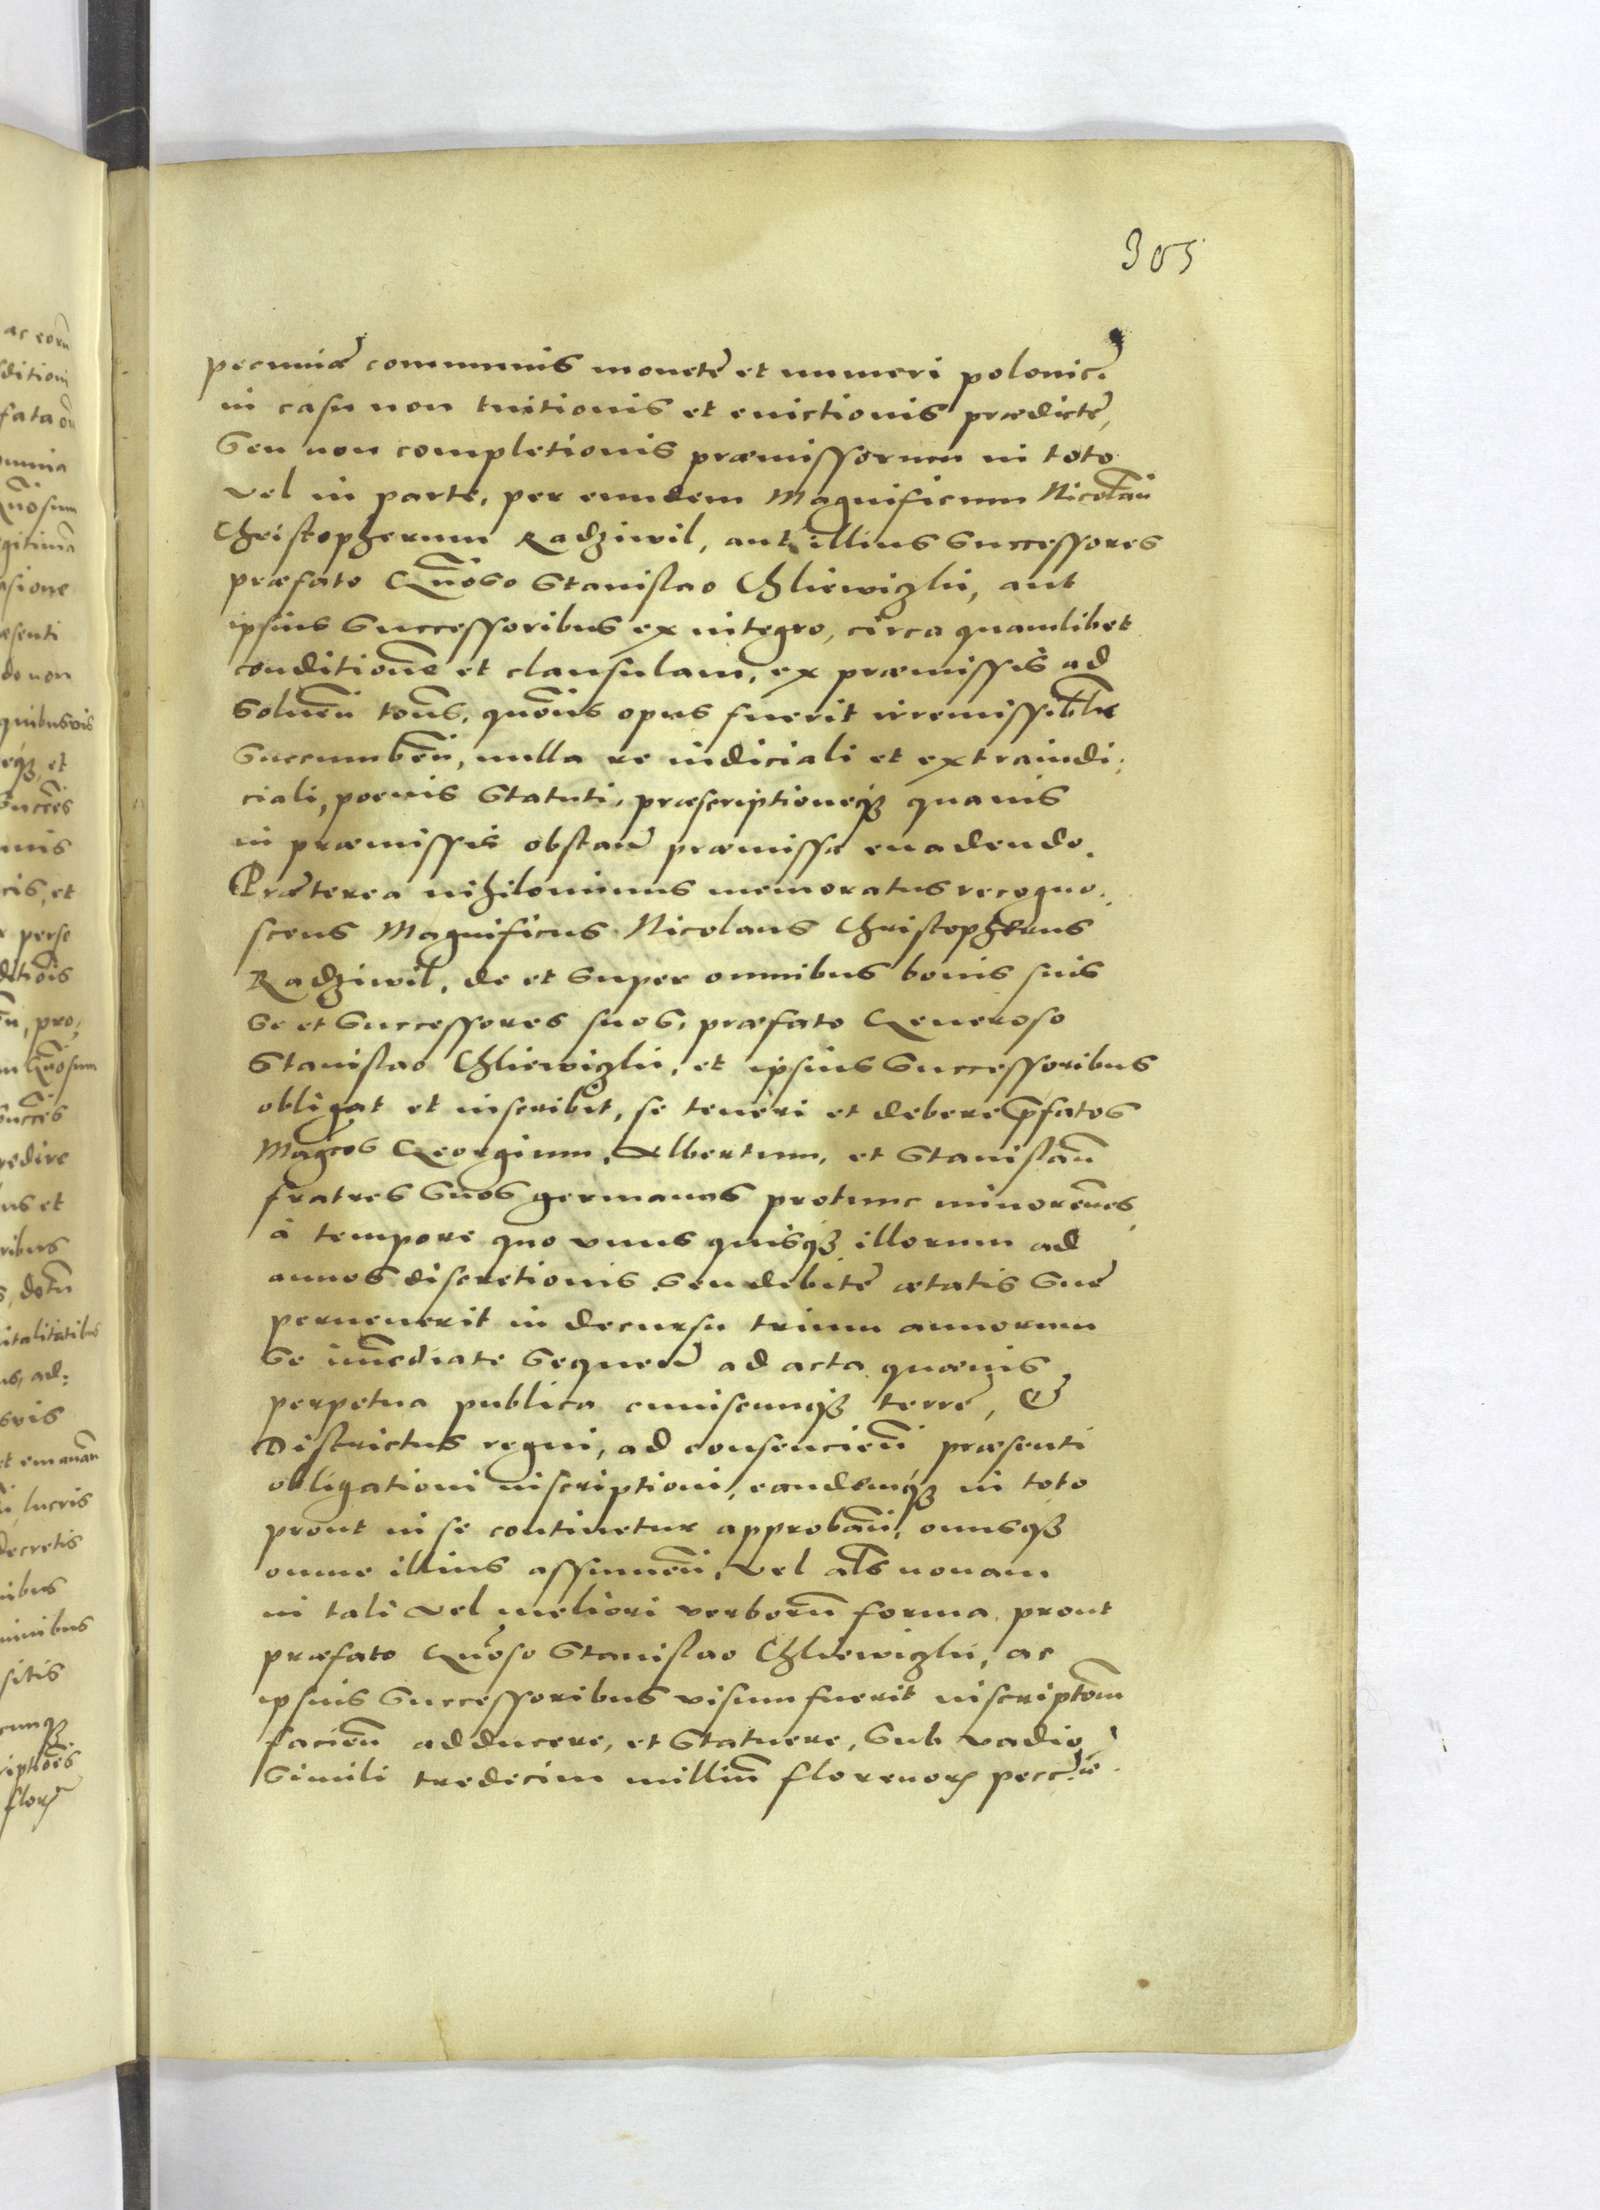 305
pecuniæ communis monetę et numeri polonic.
in casu non tuitionis et euictionis prædictę,
seu non completionis præmissorum in toto
vel in parte, per eundem Magnificum Nicolaū
Christopherum Radziwil, aut illius successores
præfato Gn̄oso Stanislao Chliewiczki, aut
ipsius successoribus ex integro, circa quamlibet
conditionē et clausulam, ex præmissis ad
soluen̄ totiēs, quotiēs opus fuerit irremissibilr
succumben̄, nulla re iudiciali et extraiudi:
ciali, poenis statuti, præscriptioneq3 quauis
in præmissis obstan̄ præmissa euadendo.
Præterea nihilominus memoratus recogno:
scens Magnificus Nicolaus Christopherus
Radziwil, de et super omnibus bonis suis
se et successores suos, præfato Generoso
Stanislao Chliewiczki, et ipsius successoribus
obligat et inscribit, se teneri et debere p̄fatos
Mag̃cos Georgium, Albertum, et Stanislaū
fratres suos germanos protunc minorēnes
à tempore quo vnus quisq3 illorum ad
annos discretionis seu debitę ætatis suę
peruenerit in decursu trium annorum
se im̄ediate sequen̄ ad acta quæuis
perpetua publica cuiuscunq3 terrę, &
districtus regni, ad consencien̄ præsenti
obligationi inscriptioni, eandemq3 in toto
prout in se continetur approban̄, onusq3
omne illius assumen̄, vel al̄s nouam
in tali vel meliori verborū forma prout
præfato Gn̄oso Stanislao Chliewiczki, ac
ipsius successoribus visum fuerit inscriptōm
facien̄ adducere, et statuere, sub vadio
simili tredecim milliū florenor̨ pecc.æ